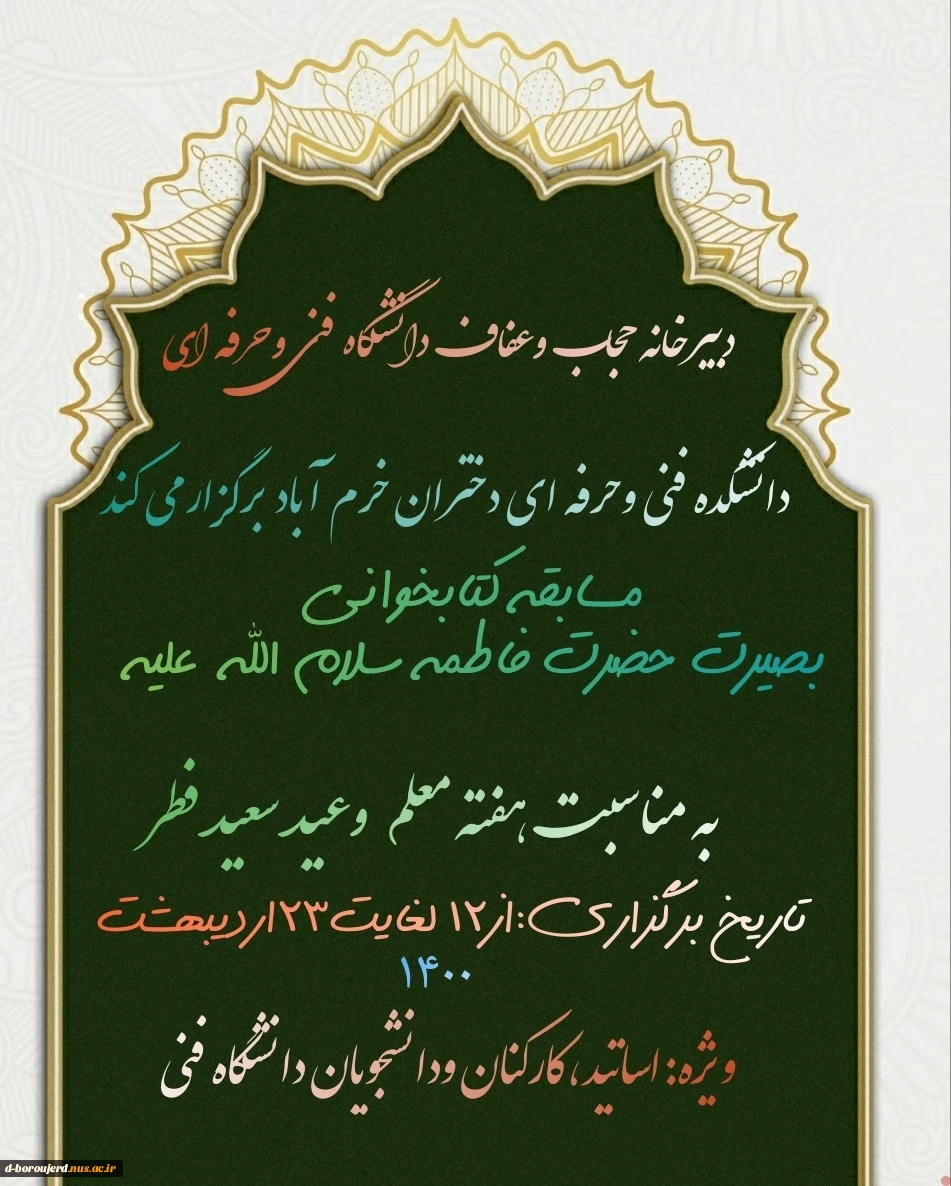 دبیرخانه حجاب وعفاف دانشگاه فنی وحرفه ای
دانشکده فنی وحرفه ای دختران خرم آباد برگزارمی کند
مسابقه کتابخوانی
بصیرت حضرت فاطمه سلام الله علیه
به مناسبت هفته معلم وعید سعید فطر
تاریخ برگزاری:از۱۲ لغایت۲۳اردیبهشت
۱۴۰۰
ویژه: اساتید،کارکنان ودانشجویان دانشگاه فنی
d-boroujerd.nus.ac.ir